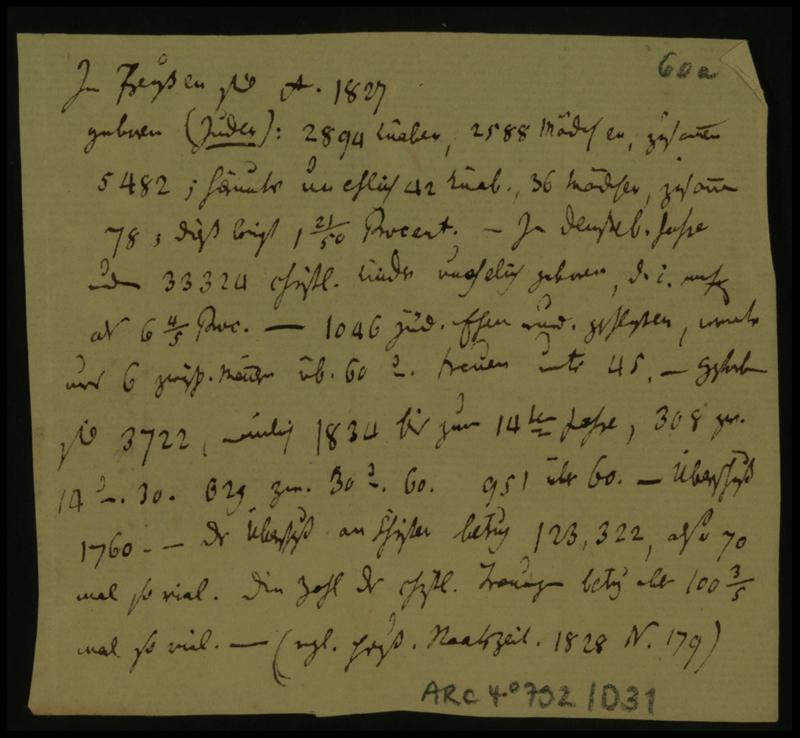 60a
In Preußen sind A. 1827
geboren (Juden): 2894 Knaben, 2588 Mädchen, zusammen
5482; hierunter unehlich 42 Knab., 36 Mädchen, zusamm
78, dieß beträgt 1 21/50 Procent. — In demselb. Jahre
33324 christl. Kinder unehelich geboren, d. i. mehr
als 6 4/5 Proc. — 1046 jüd. Ehen wurd. geschlossen, worunter
nur 6 zwisch. Männern üb. 60 u. Frauen unter 45. — Gestorben
sind 3722, nämlich 1834 bis zum 14ten Jahre, 308 zw.
14 u. 30. 629 zw. 30 u. 60. 951 über 60. — Überschuß
1760. — Der Überschuß an Christen betrug 123,322, also 70
mal so viel. Die Zahl der christl. Trauungen betrug aber 100 3/5
mal so viel. — (vgl. preuß. Staatszeit. 1828 N. 179)
ARC 4° 792 / D31